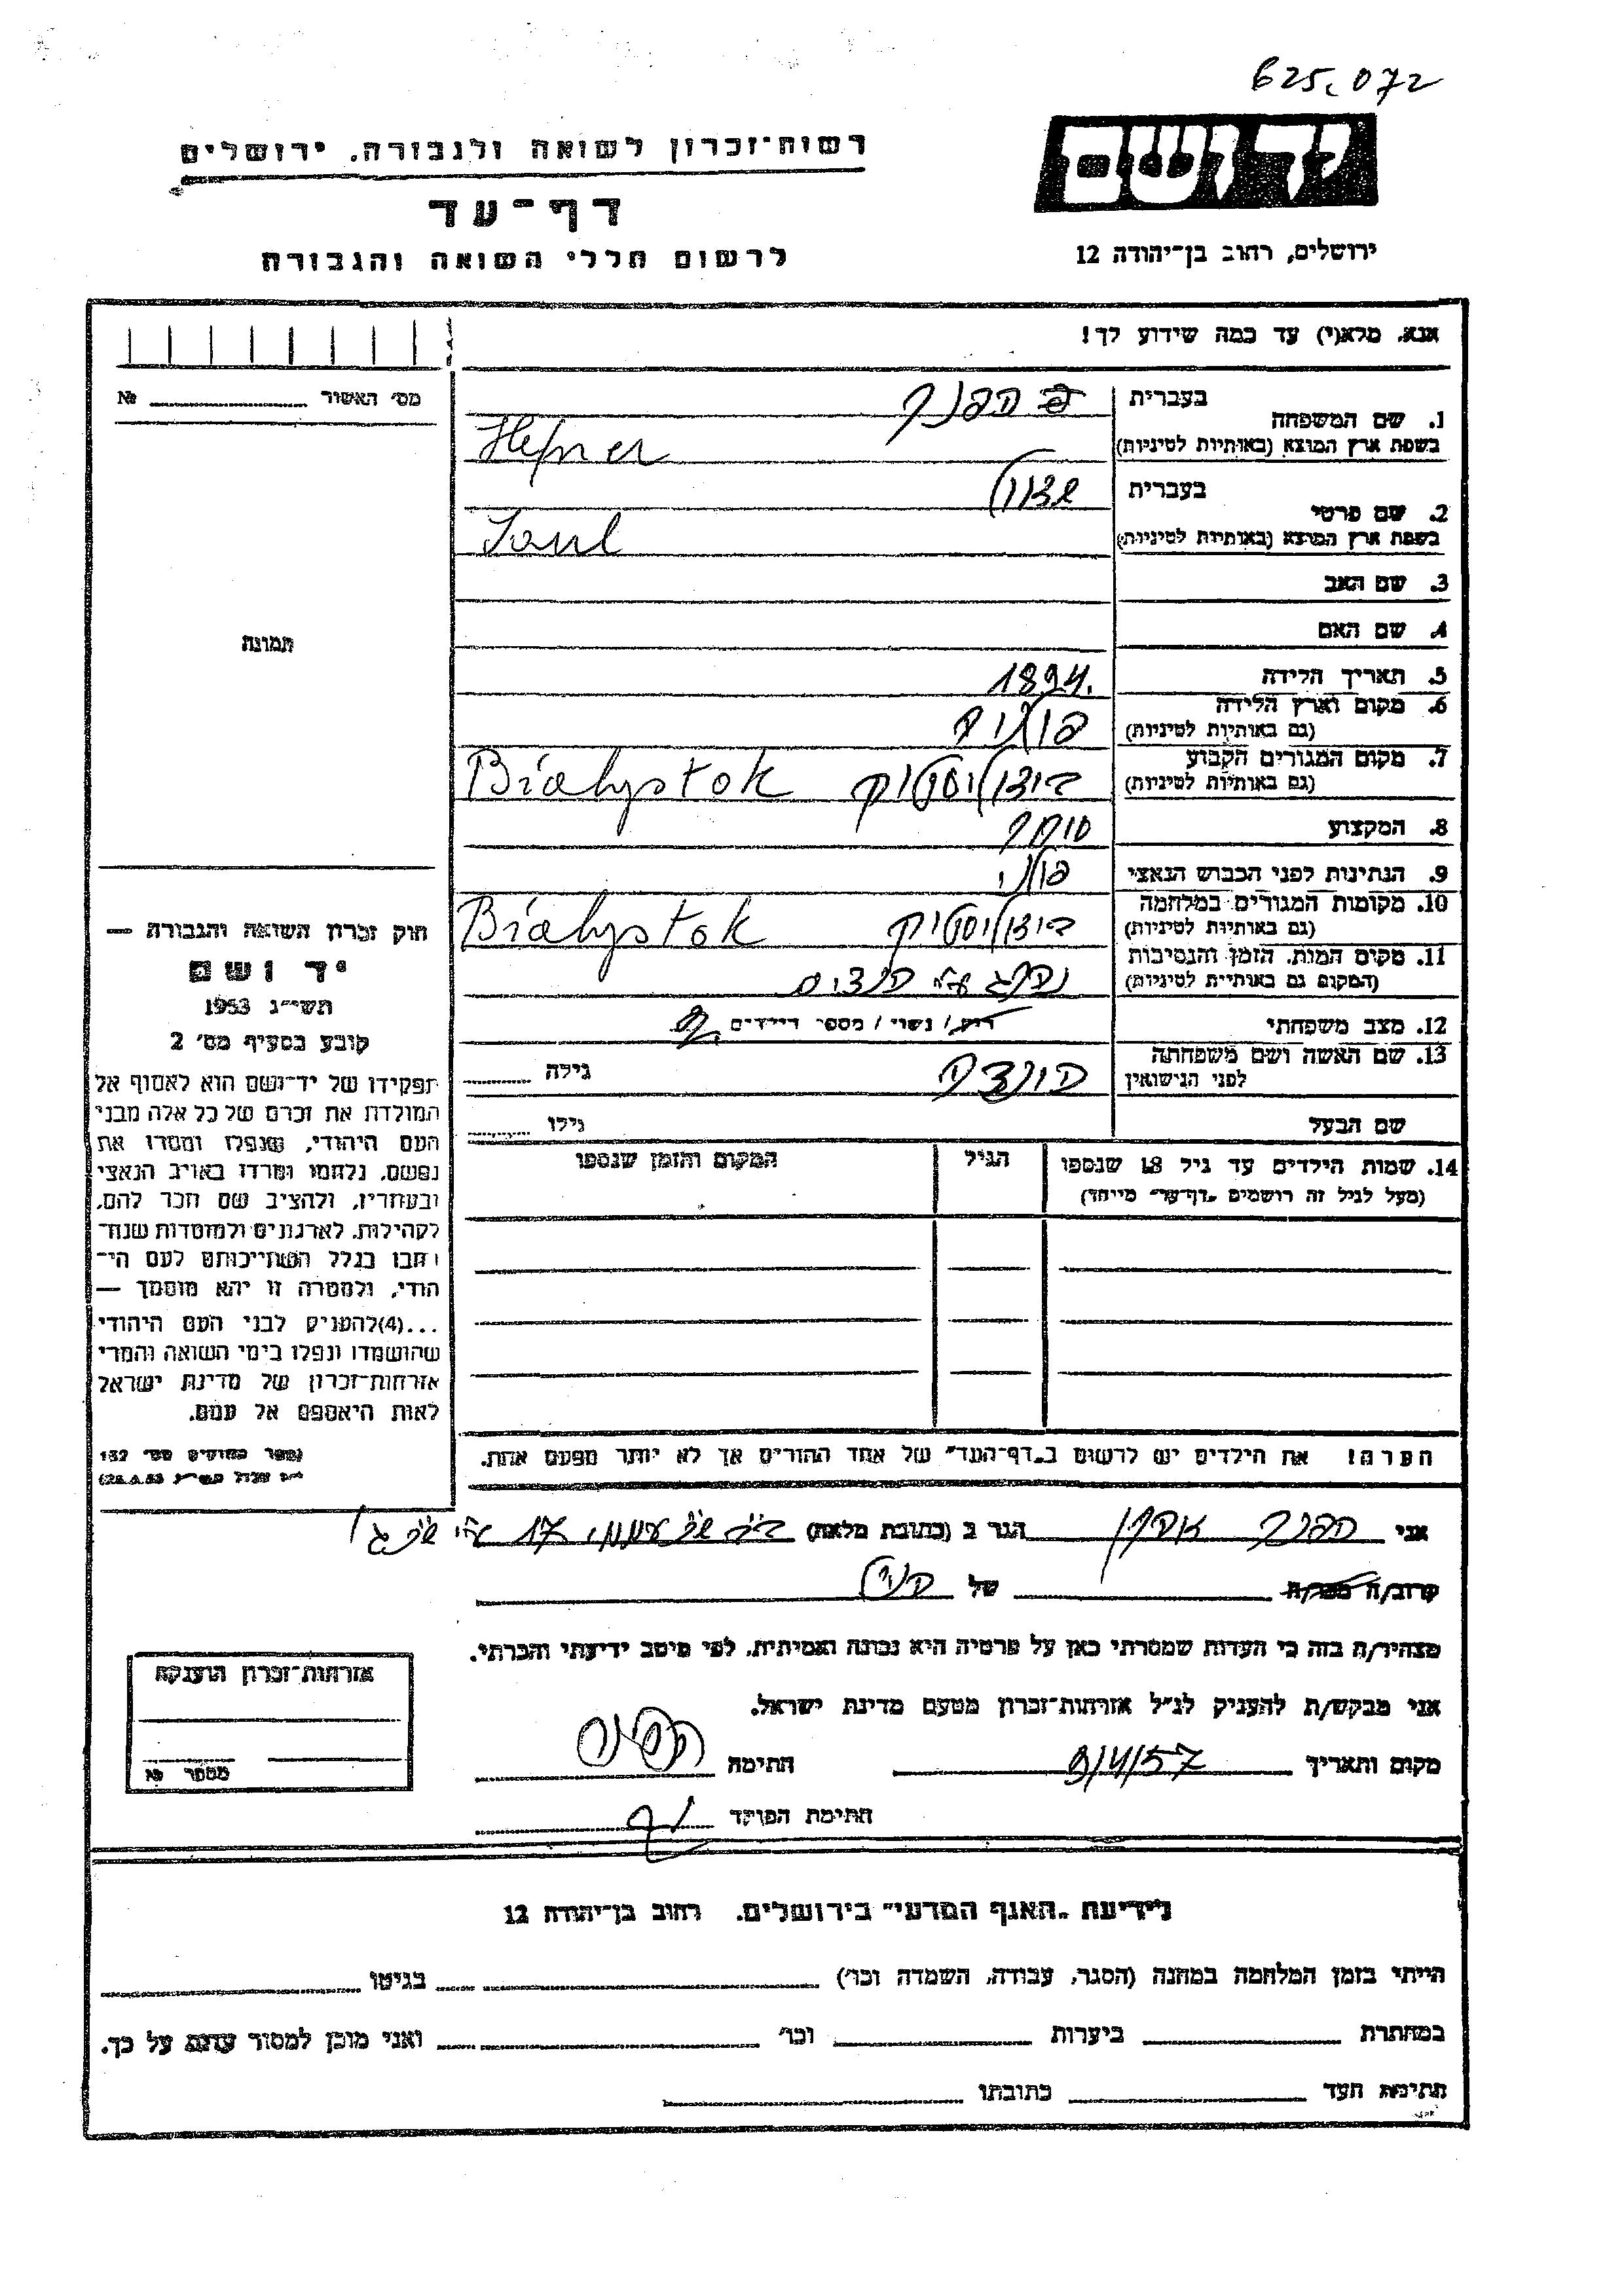 625.072
רשות־זכרון לשואה ולגבורה. ירושלים
יד ושם
דף־עד
לרשום חללי השואה והגבורה
ירושלים, רחוב בן־יהודה 12
אנא, מלא(י) עד כמה שידוע לך!
מס׳ האשור № 
1. שם המשפחה
בעברית הפנר
בשפת ארץ המוצא (באותיות לטיניות) Hefner
2. שם פרטי
בעברית שאול
בשפת ארץ המוצא (באותיות לטיניות) Saul
3. שם האב
4. שם האם
תמונה
5. תאריך הלידה 1894.
6. מקום וארץ הלידה
(גם באותיות לטיניות) פולניה
7. מקום המגורים הקבוע
(גם באותיות לטיניות) ביאליסטוק Bialystok
8. המקצוע סוחר
9. הנתינות לפני הכבוש הנאצי פולני
10. מקומות המגורים במלחמה
(גם באותיות לטיניות) ביאליסטוק Bialystok
11. מקום המות, הזמן והנסיבות
(המקום גם באותיות לטיניות) נהרג ע״י הנאצים
12. מצב משפחתי רוק / נשוי / מספר הילדים
13. שם האשה ושם משפחתה
לפני הנישואין
גילה
שם הבעל גילו
14. שמות הילדים עד גיל 18 שנספו
(מעל לגיל זה רושמים „דף־עד״ מיוחד)
הגיל
המקום והזמן שנספו
חוק זכרון השואה והגבורה —
יד ושם
תשי״ג 1953
קובע בסעיף מס׳ 2
תפקידו של יד־ושם הוא לאסוף אל
המולדת את זכרם של כל אלה מבני
העם היהודי, שנפלו ומסרו את
נפשם, נלחמו ומרדו באויב הנאצי
ובעוזריו, ולהציב שם וזכר להם,
לקהילות, לארגונים ולמוסדות שנח־
רבו בגלל השתייכותם לעם הי־
הודי, ולמטרה זו יהא מוסמך —
...(4)להעניק לבני העם היהודי
שהושמדו ונפלו בימי השואה והמרי
אזרחות־זכרון של מדינת ישראל
לאות היאספם אל עמם.
(ספר החוקים מס׳ 132
הערה! את הילדים יש לרשום ב„דף־העד״ של אחד ההורים אך לא יותר מפעם אחת.
אני הפנר הגר ב (כתובת מלאה) 17
קרוב/ה מכר/ה של
מצהיר/ה בזה כי העדות שמסרתי כאן על פרטיה היא נכונה ואמיתית, לפי מיטב ידיעתי והכרתי.
אני מבקש/ת להעניק לנ״ל אזרחות־זכרון מטעם מדינת ישראל.
מקום ותאריך 9/4/57 חתימה
חתימת הפוקד
אזרחות־זכרון הוענקה
מספר №
לידיעת „האגף המדעי״ בירושלים, רחוב בן־יהודה 12
הייתי בזמן המלחמה במחנה (הסגר, עבודה, השמדה וכו׳) בגיטו
במחתרת ביערות וכו׳ ואני מוכן למסור עדות על כך.
חתימת העד כתובתו